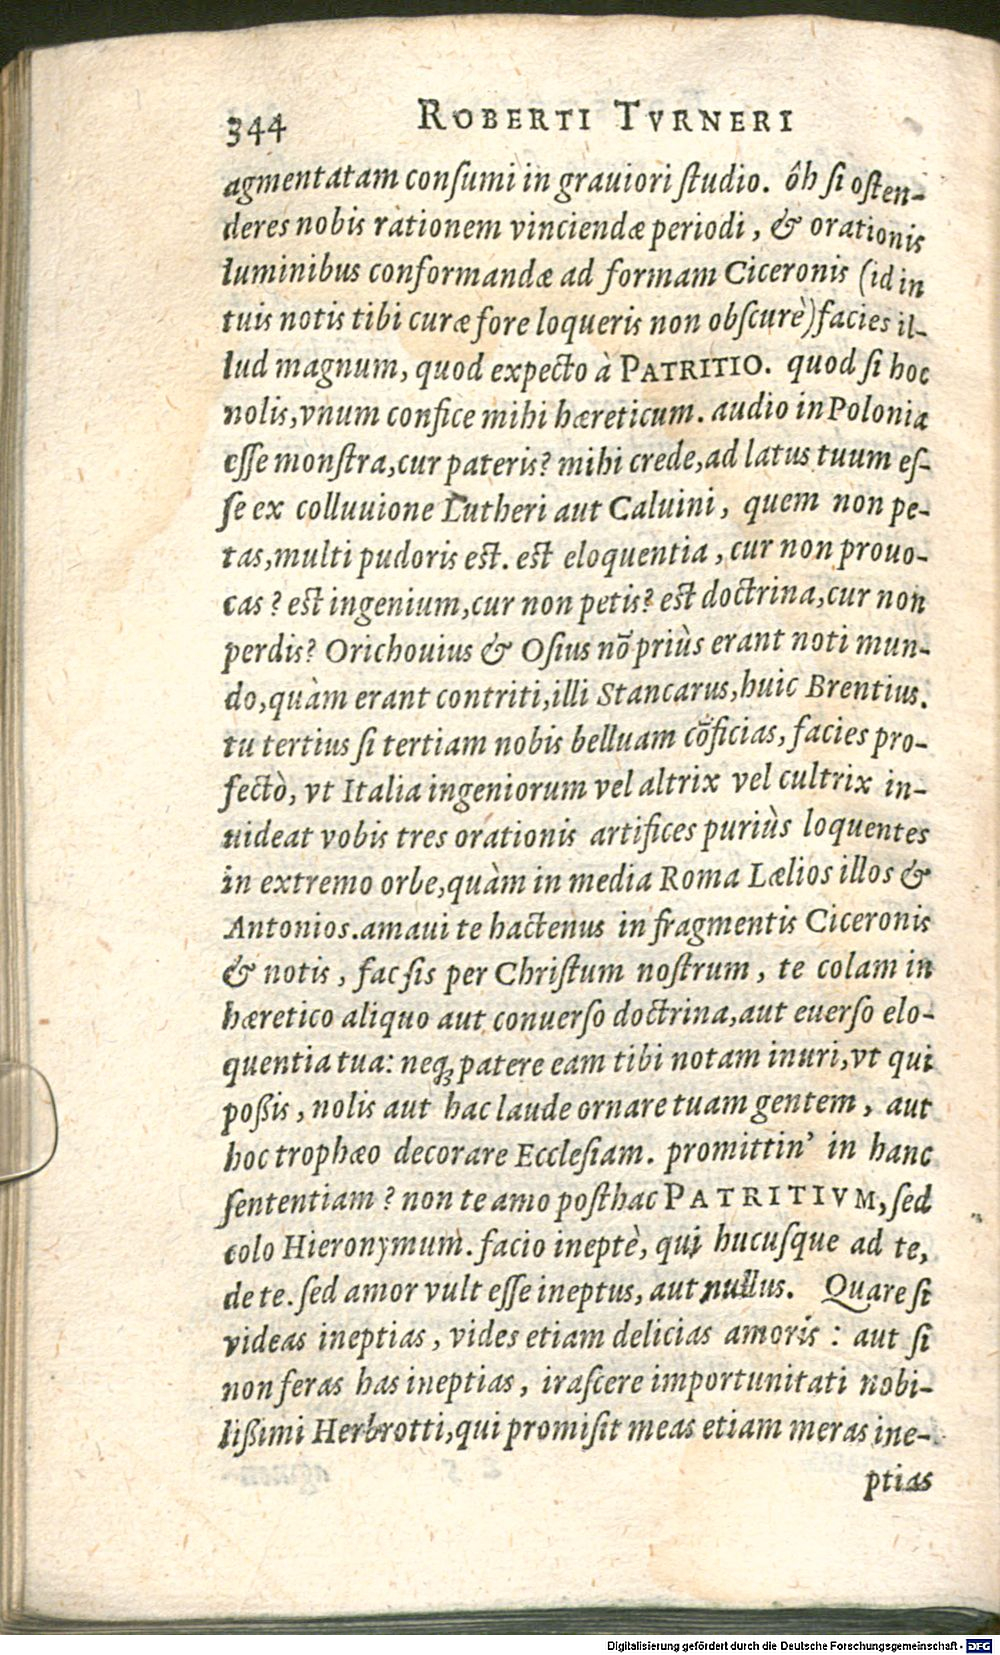 344 ROBERTI TVRNERI
agmentatam conſumi in grauiori ſtudio. ôh ſi oſten-
deres nobis rationem vinciendæ periodi, & orationis
luminibus conformandæ ad formam Ciceronis (id in
tuis notis tibi curæ fore loqueris non obſcurè) facies il-
lud magnum, quod expecto à PATRITIO. quod ſi hoc
nolis, vnum confice mihi hæreticum. audio in Polonia
eſſe monſtra, cur pateris? mihi crede, ad latus tuum eſ-
ſe ex colluuione Lutheri aut Caluini, quem non pe-
tas, multi pudoris eſt. eſt eloquentia, cur non prouo-
cas? eſt ingenium, cur non petis? eſt doctrina, cur non
perdis? Orichouius & Oſius nõ priùs erant noti mun-
do, quàm erant contriti, illi Stancarus, huic Brentius.
tu tertius ſi tertiam nobis belluam cõficias, facies pro-
fectò, vt Italia ingeniorum vel altrix vel cultrix in-
uideat vobis tres orationis artifices puriùs loquentes
in extremo orbe, quàm in media Roma Lælios illos &
Antonios. amaui te hactenus in fragmentis Ciceronis
& notis, fac ſis per Chriſtum noſtrum, te colam in
hæretico aliquo aut conuerſo doctrina, aut euerſo elo-
quentia tua: neq; patere eam tibi notam inuri, vt qui
poßis, nolis aut hac laude ornare tuam gentem, aut
hoc trophæo decorare Eccleſiam. promittin' in hanc
ſententiam? non te amo poſthac PATRITIVM, ſed
colo Hieronymum. facio ineptè, qui hucuſque ad te,
de te. ſed amor vult eſſe ineptus, aut nullus. Quare ſi
videas ineptias, vides etiam delicias amoris: aut ſi
non feras has ineptias, iraſcere importunitati nobi-
lißimi Herbrotti, qui promiſit meas etiam meras ine-
ptias
Digitalisierung gefördert durch die Deutsche Forschungsgemeinschaft - DFG